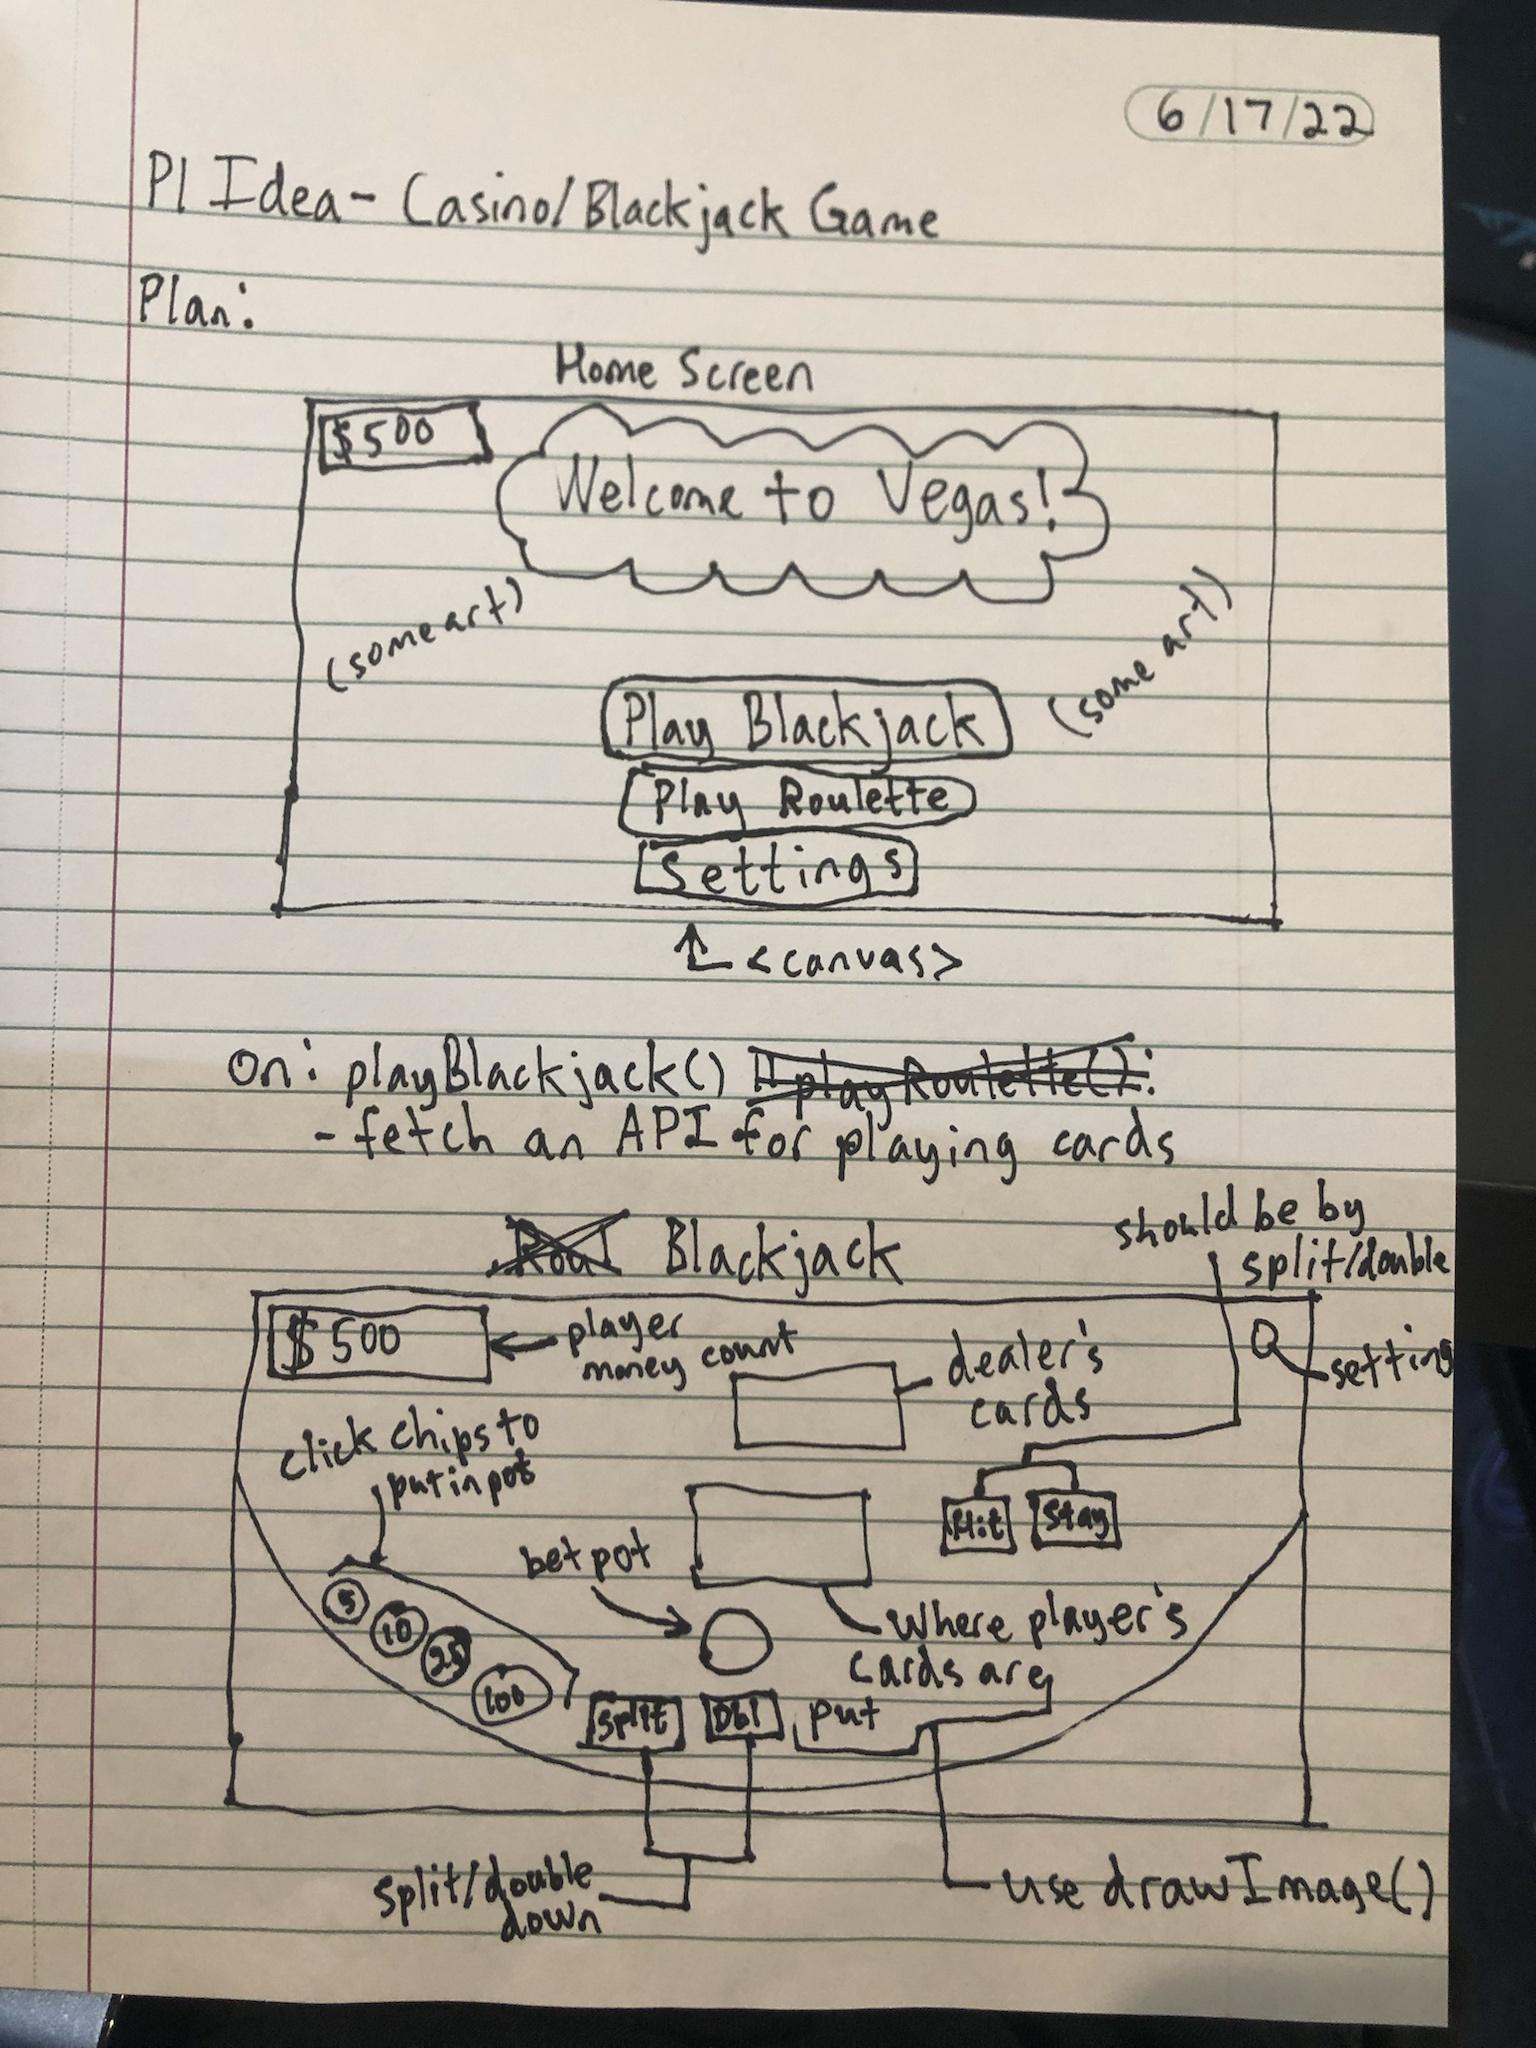 6/17/22
P1 Idea - Casino/Blackjack Game
Plan:
Home Screen
$500
Welcome to Vegas!
(some art)
(some art)
Play Blackjack
Play Roulette
Settings
<canvas>
On: playBlackjack() || playRoulette():
- fetch an API for playing cards
should be by
split/double
Roul Blackjack
$500
player
money count
dealer's
cards
setting
click chips to
put in pot
Hit
Stay
bet pot
5
10
25
100
where player's
cards are
put
Split
Dbl
split/double
down
use drawImage()